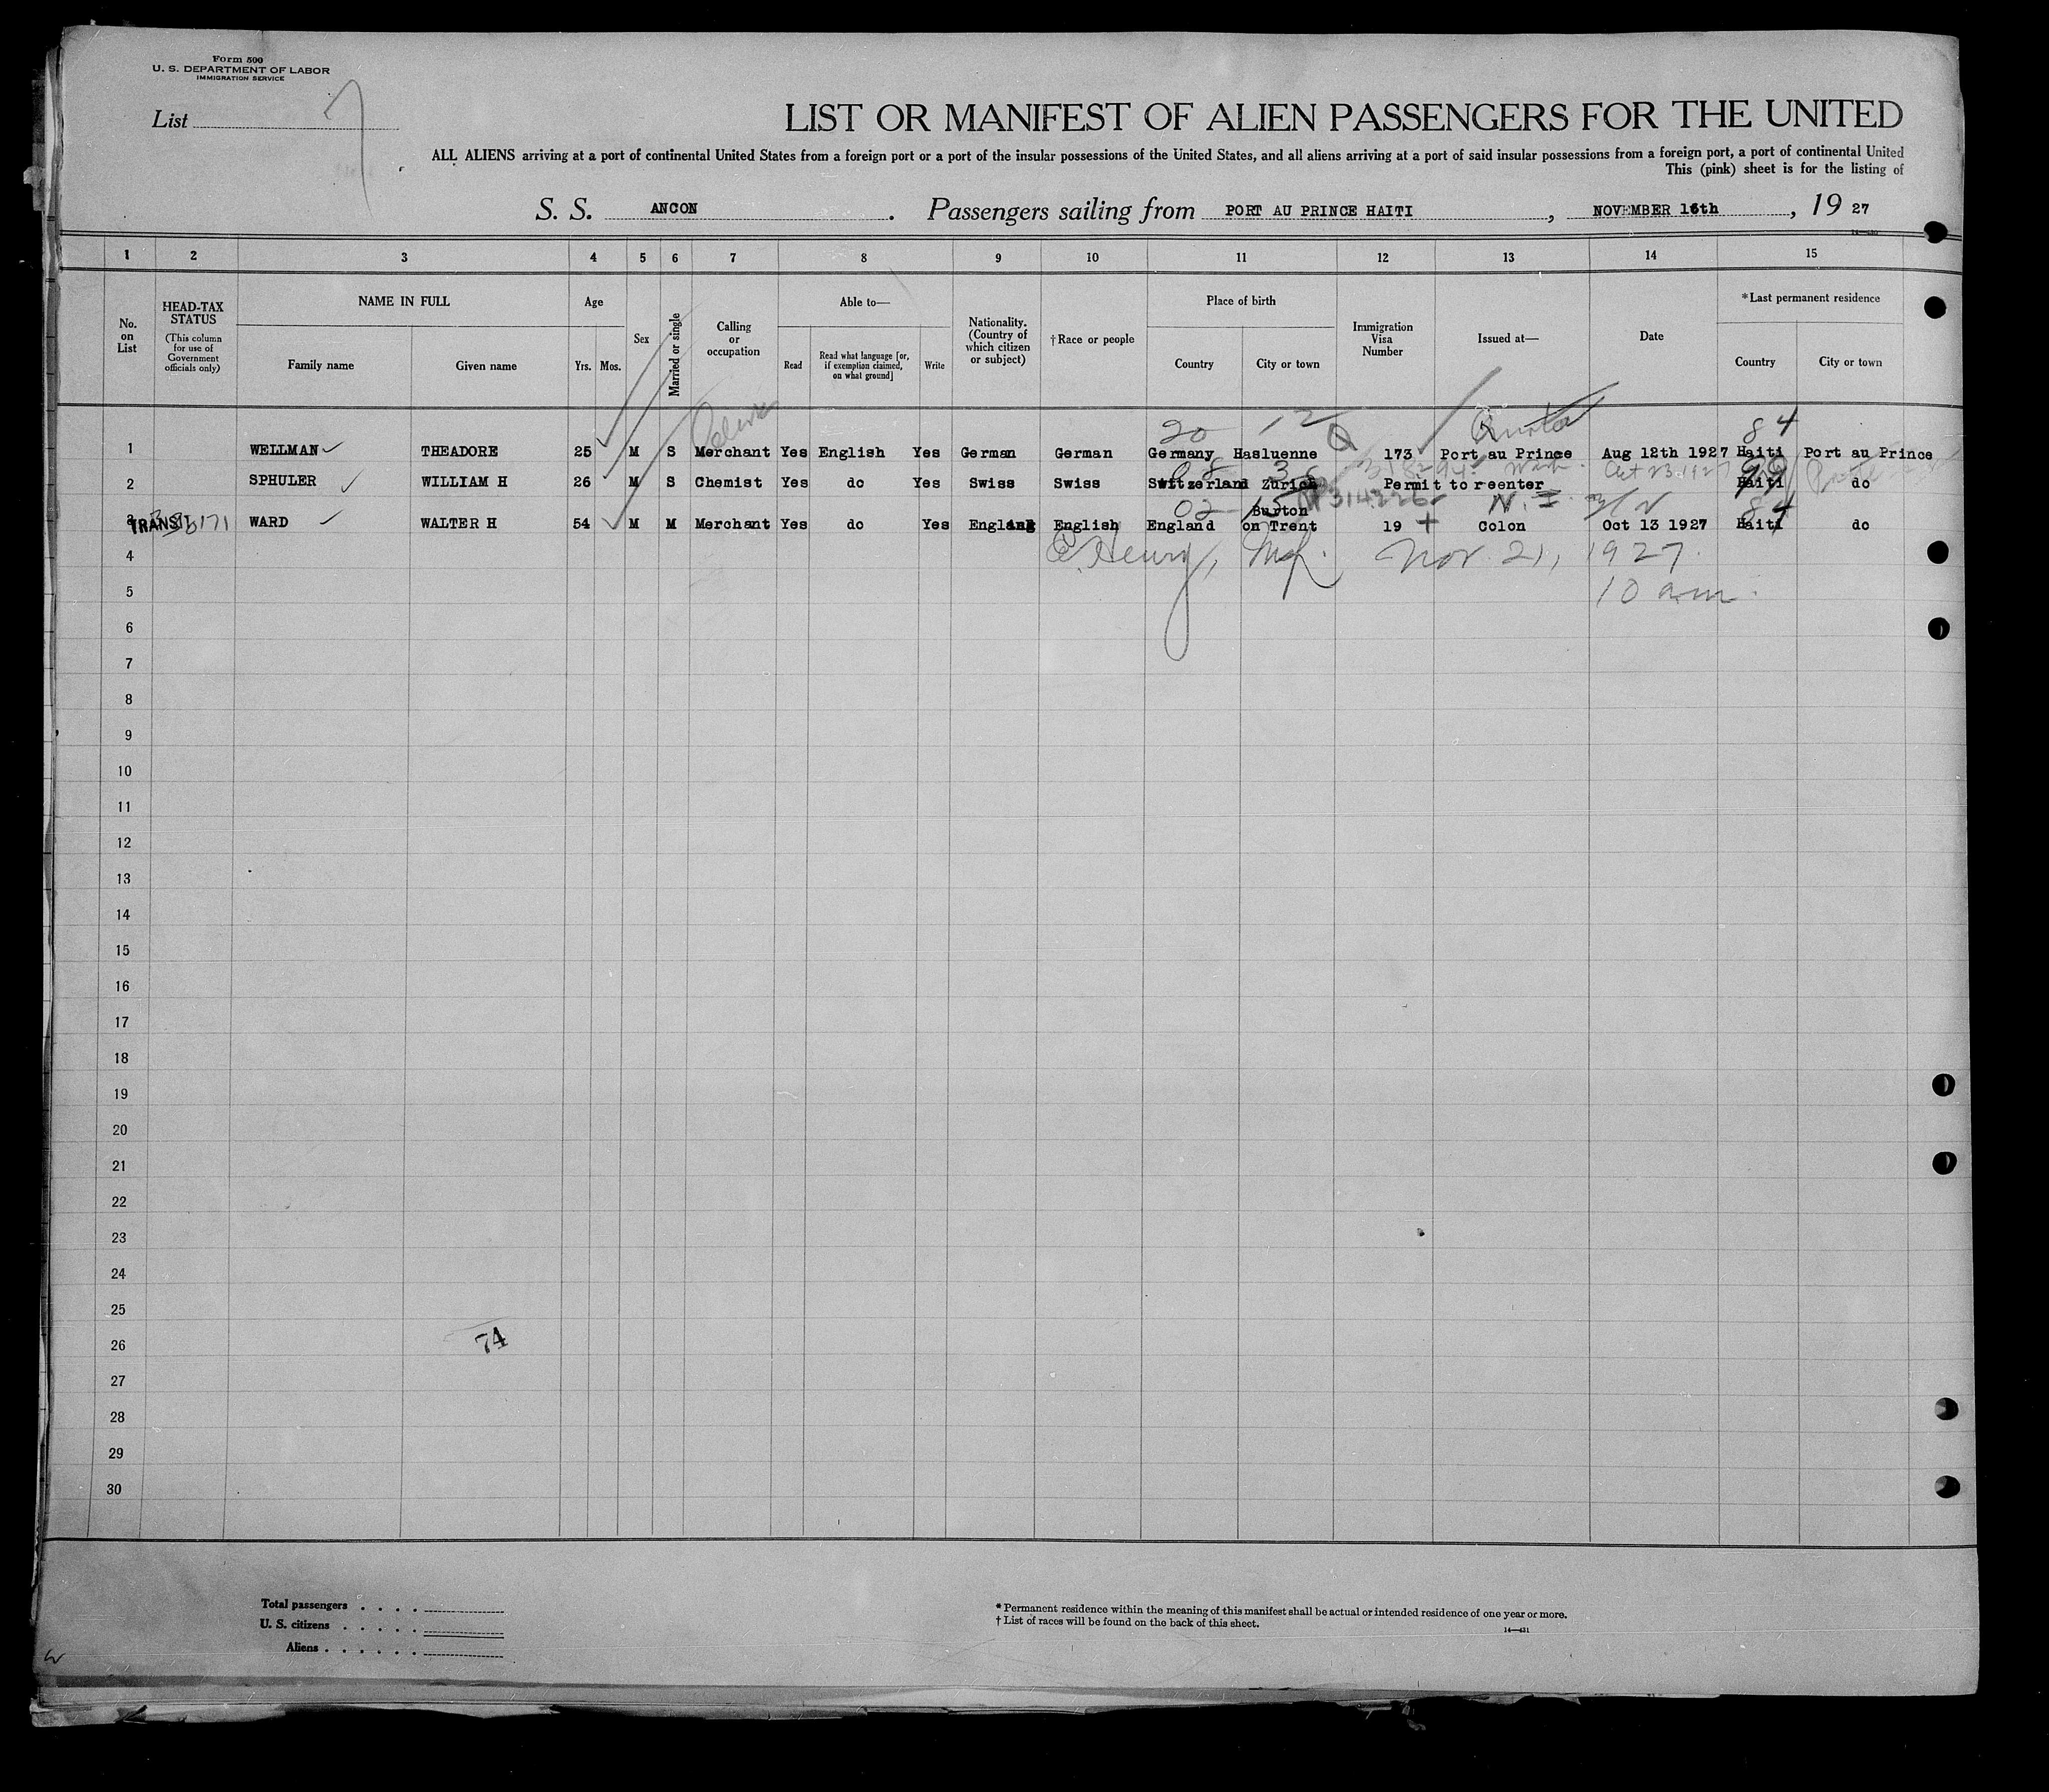 Form 500
U. S. DEPARTMENT OF LABOR
IMMIGRATION SERVICE
List 7
LIST OR MANIFEST OF ALIEN PASSENGERS FOR THE UNITED
ALL ALIENS arriving at a port of continental United States from a foreign port or a port of the insular possessions of the United States, and all aliens arriving at a port of said insular possessions from a foreign port, a port of continental United
This (pink) sheet is for the listing of
S. S. ANCON. Passengers sailing from PORT AU PRINCE HAITI, NOVEMBER 16th, 19 27
1 2 3 4 5 6 7 8 9 10 11 12 13 14 15
No. on List
HEAD-TAX STATUS
(This column for use of Government officials only)
NAME IN FULL
Family name
Given name
Age
Yrs.
Mos.
Sex
Married or single
Calling or occupation
Able to—
Read
Read what language [or, if exemption claimed, on what ground]
Write
Nationality. (Country of which citizen or subject)
†Race or people
Place of birth
Country
City or town
Immigration Visa Number
Issued at—
Date
*Last permanent residence
Country
City or town
20 12 Q Quota 84
1 WELLMAN THEADORE 25 M S Merchant Yes English Yes German German Germany Hasluenne 173 Port au Prince Aug 12th 1927 Haiti Port au Prince
Oct 23 1927 99
2 SPHULER WILLIAM H 26 M S Chemist Yes do Yes Swiss Swiss Switzerland Zurich Permit to reenter Haiti do
02 15 314226 84
3 TRANSIT WARD WALTER H 54 M M Merchant Yes do Yes English England Burton on Trent 19 Colon Oct 13 1927 Haiti do
4 Henry, Nov. 21, 1927.
5 10 am.
6
7
8
9
10
11
12
13
14
15
16
17
18
19
20
21
22
23
24
25
26 74
27
28
29
30
Total passengers
U. S. citizens
Aliens
* Permanent residence within the meaning of this manifest shall be actual or intended residence of one year or more.
† List of races will be found on the back of this sheet.
14—431